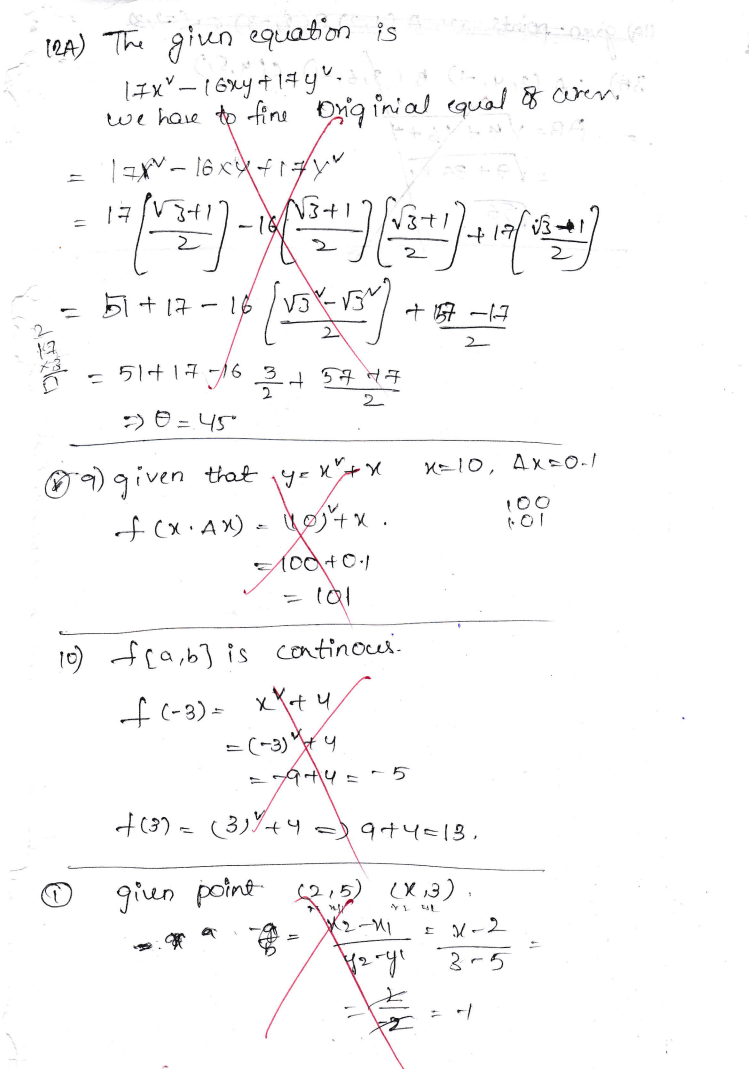 12A) The given equation is
17x² – 16xy + 17y².
we have to fine Originial equal of
= 17x² – 16xy + 17y²
= 17 [(√3+1)/2] – 16 [(√3+1)/2] [(√3+1)/2] + 17 [(√3+1)/2]
= 51 + 17 – 16 [(√3² – √3²)/2] + (57 – 17)/2
= 51 + 17 – 16 3/2 + (57 + 17)/2
⇒ θ = 45°
9) given that y = x² + x x=10, Δx=0.1
f(x·Δx) = (10)² + x . 100
= 100 + 0.1 1.01
= 101
10) f[a,b] is continous.
f(-3) = x² + 4
= (-3)² + 4
= -9+4 = -5
f(3) = (3)² + 4 ⇒ 9+4=13.
① given point (2,5) (x,3).
= (x2-x1)/(y2-y1) = (x-2)/(3-5) =
= 2/-2 = -1